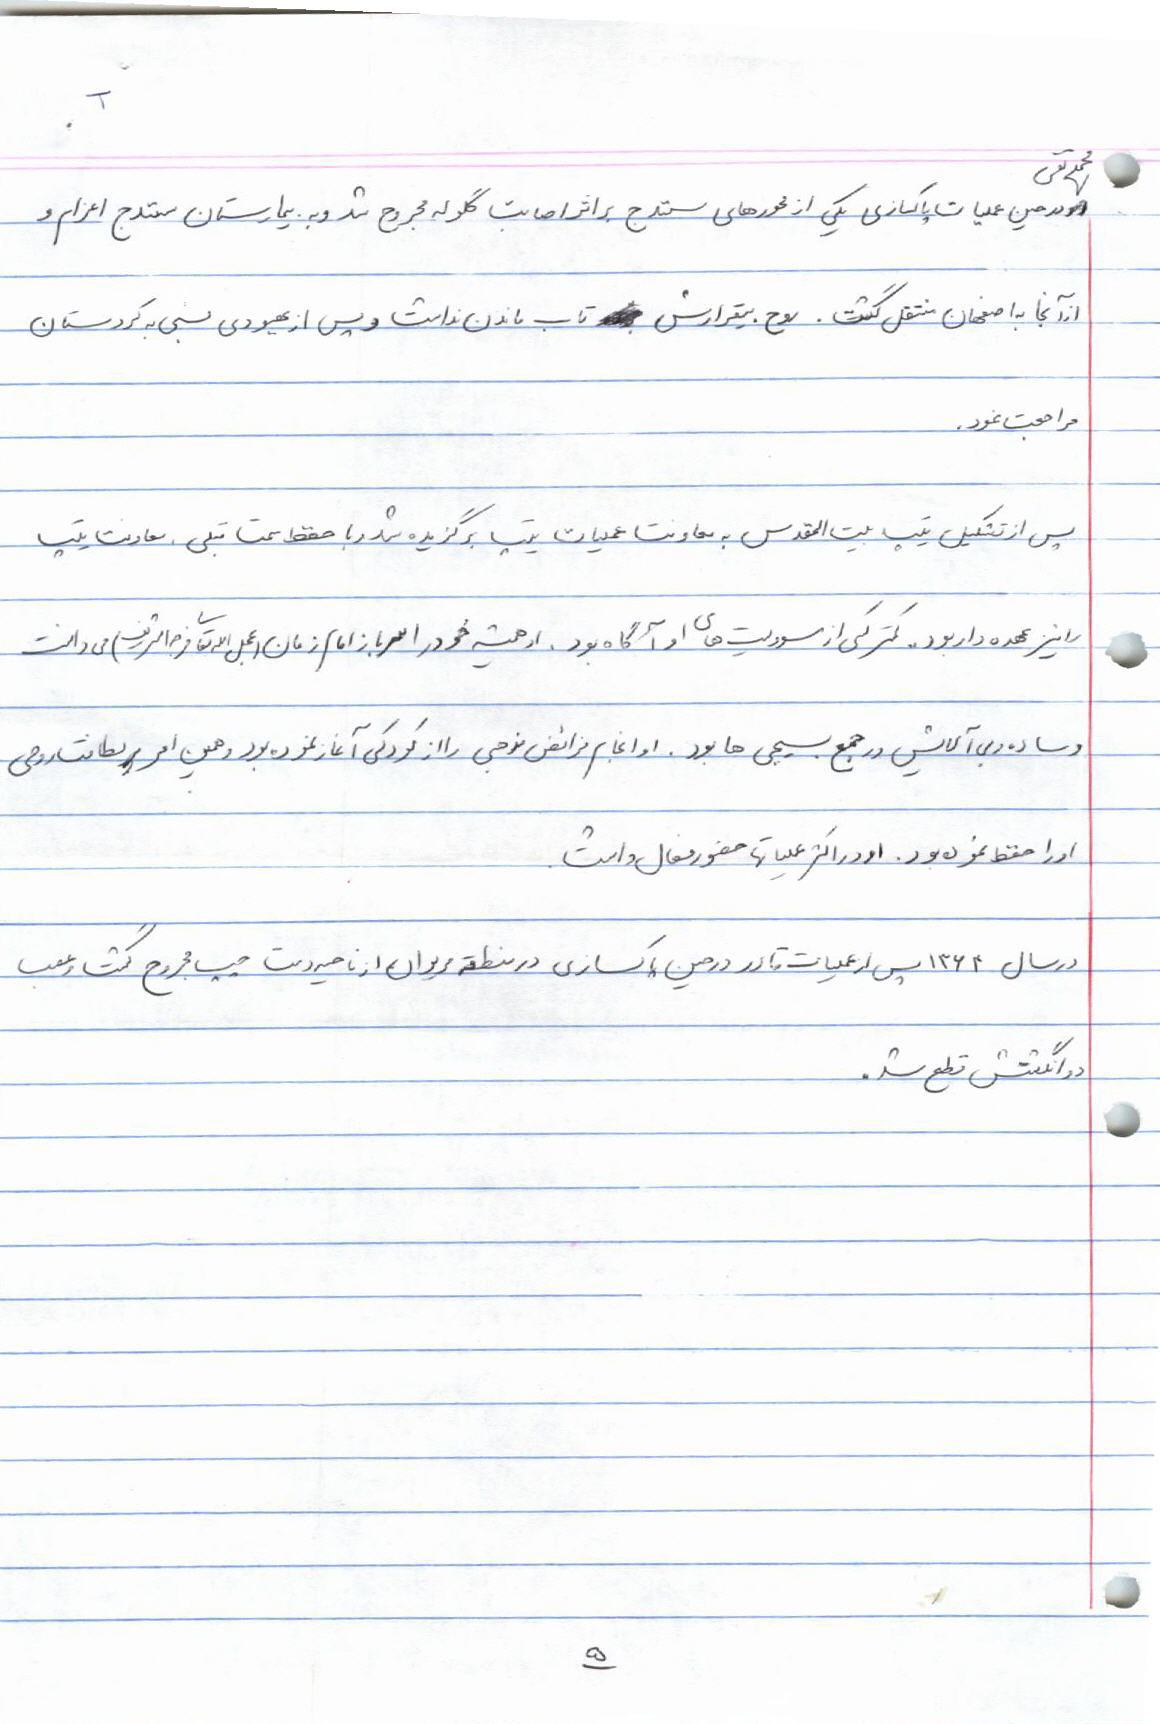 محمدتقی
در حین عملیات پاکسازی یکی از محورهای سنندج براثر اصابت گلوله مجروح شد و به بیمارستان سنندج اعزام و
از آنجا به اصفهان منتقل گشت. روح بیقرارش تاب ماندن نداشت و پس از بهبودی نسبی به کردستان
مراجعت نمود.
پس از تشکیل تیپ بیت المقدس به معاونت عملیات تیپ برگزیده شد و با حفظ سمت قبلی، معاونت تیپ
را نیز عهده دار بود. کمتر کسی از مسوولیت های او آگاه بود. او همیشه خود را سرباز امام زمان (عجل الله تعالی فرجه الشریف) می دانست
و ساده و بی آلایش در جمع بسیجی ها بود. او انجام فرائض مذهبی را از کودکی آغاز نموده بود و همین امر روحی
او را حفظ نموده بود. او در اکثر عملیاتها حضور فعال داشت.
در سال ۱۳۶۴ پس از عملیات قادر در حین پاکسازی در منطقه مریوان از ناحیه دست چپ مجروح گشت و عصب
دو انگشتش قطع شد.
۵